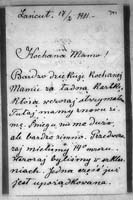 Łańcut, 17/2 1911.
Kochana Mamo!
Bardzo dziękuję Kochanej
Mamie za ładną kartkę,
którą wczoraj otrzymałam.
Tutaj mamy znowu zi-
mę. Śniegu nie ma dużo
ale bardzo zimno. Przedwczo-
raj mieliśmy 14° mrozu.
Wczoraj byliśmy w
Jedna część już
jest uporządkowana.